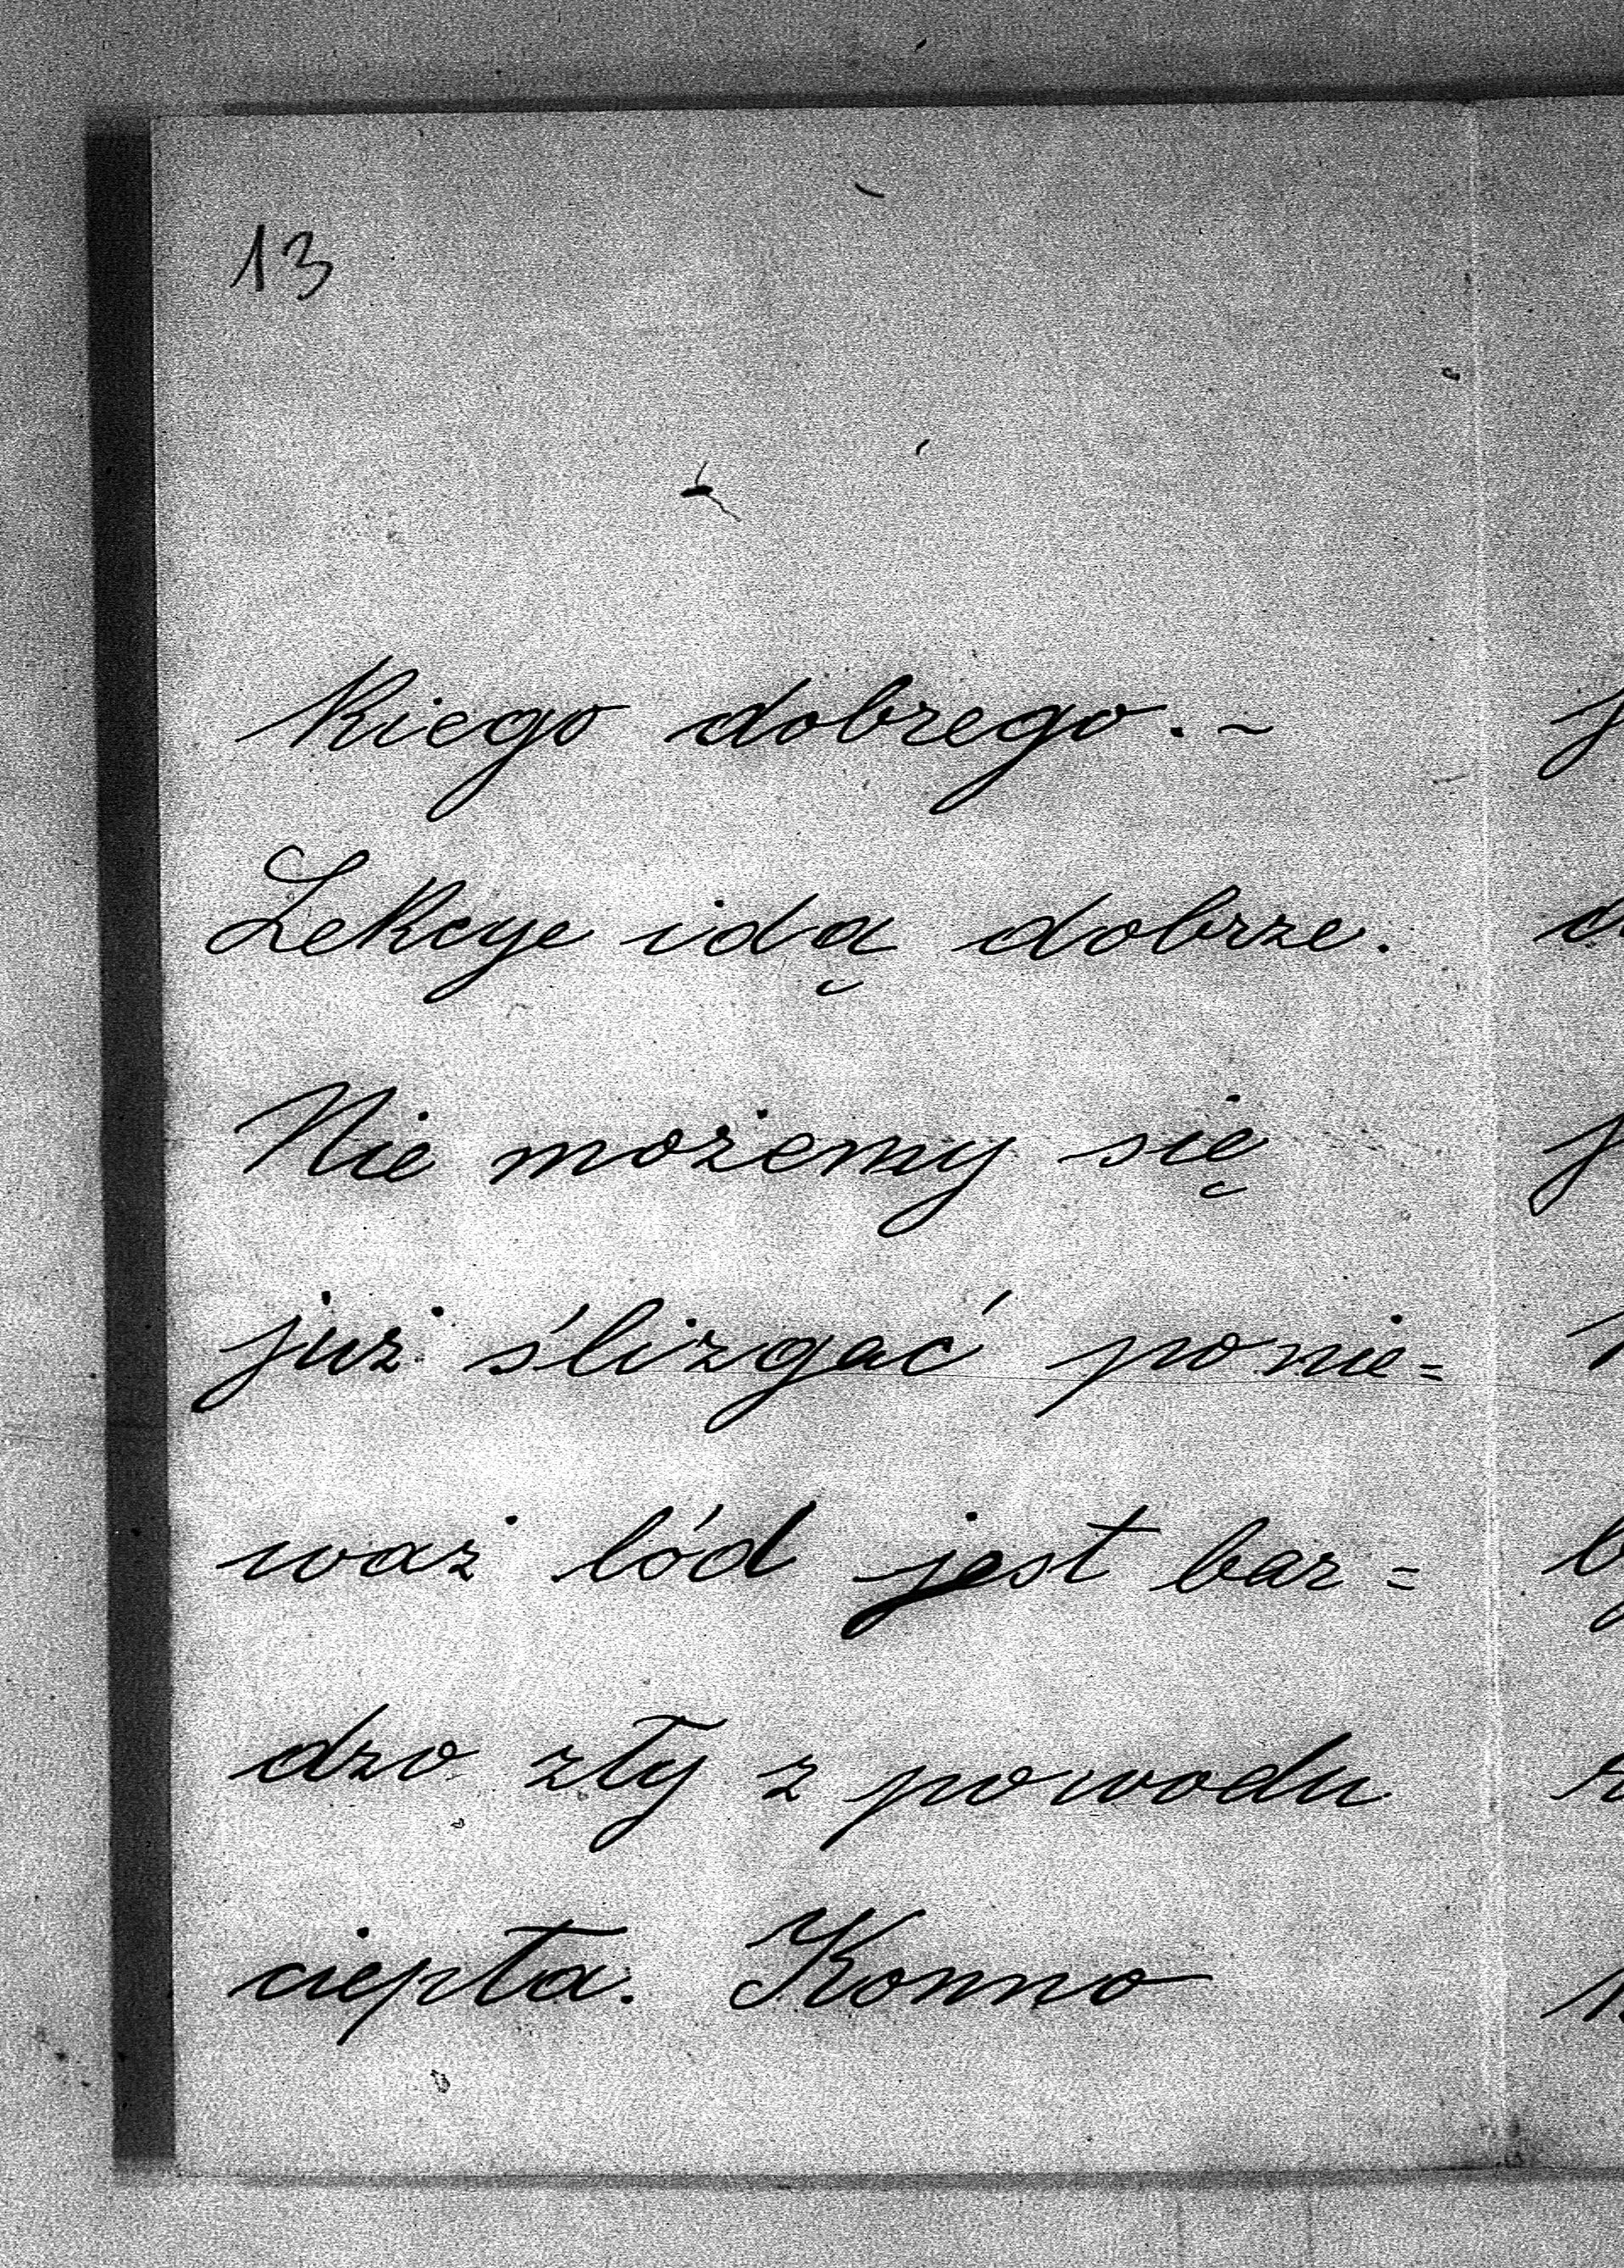 13
kiego dobrego. ~
Lekcye idą dobrze.
Nie możemy się
już ślizgać ponie=
waż lód jest bar=
dzo zły z powodu
ciepła. Konno